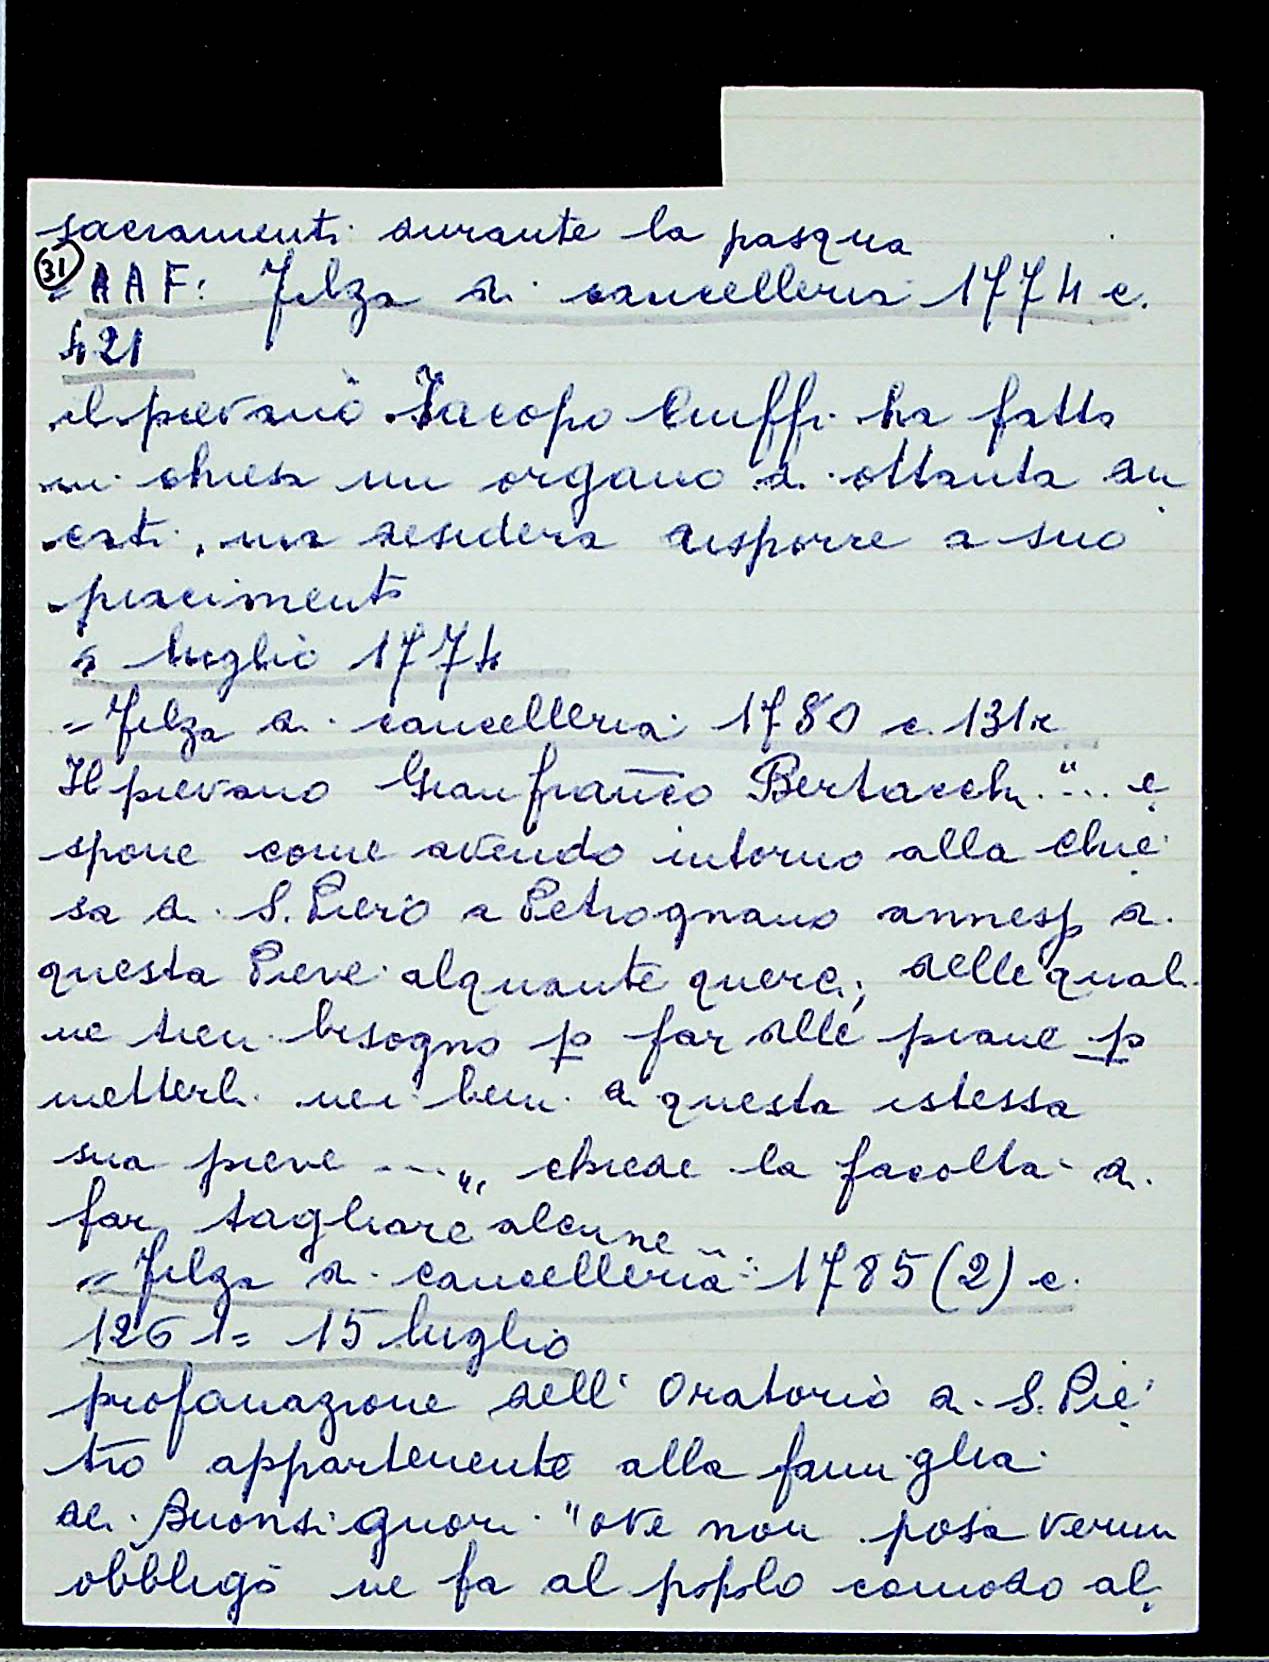 sacramenti durante la pasqua
(31)
= AAF: Filza di cancelleria 1774 c.
421
il pievano Iacopo Ciuffi ha fatto
in chiesa un organo di ottanta du
cati, ma desidera disporre a suo
piacimento
luglio 1774
= Filza di cancelleria 1780 c. 131r
Il pievano Gianfranco Bertacchi "... e
spone come avendo intorno alla chie
sa di S. Piero a Petrognano annessa di
questa Pieve alquante querci, delle quali
ne tien bisogno p far delle piane p
metterli nei beni di questa istessa
sua pieve ...„ chiede la facoltà di
far tagliare alcune
= Filza di cancelleria 1785 (2) c.
126 1= 15 luglio
profanazione dell' Oratorio di S. Pie
tro appartenente alla famiglia
dei Buonsignori "ove non posa verun
obbligo ne fa al popolo comodo al